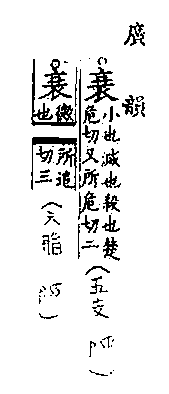 廣韻
衰小也減也殺也楚危切又所危切二（五支
衰微也所追切三（六脂